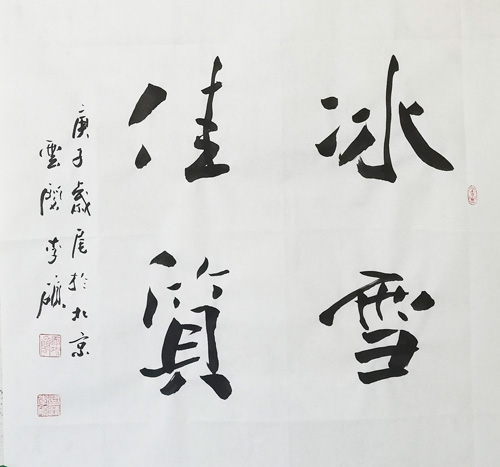 冰雪
佳質
庚子歲尾於北京
雲 李